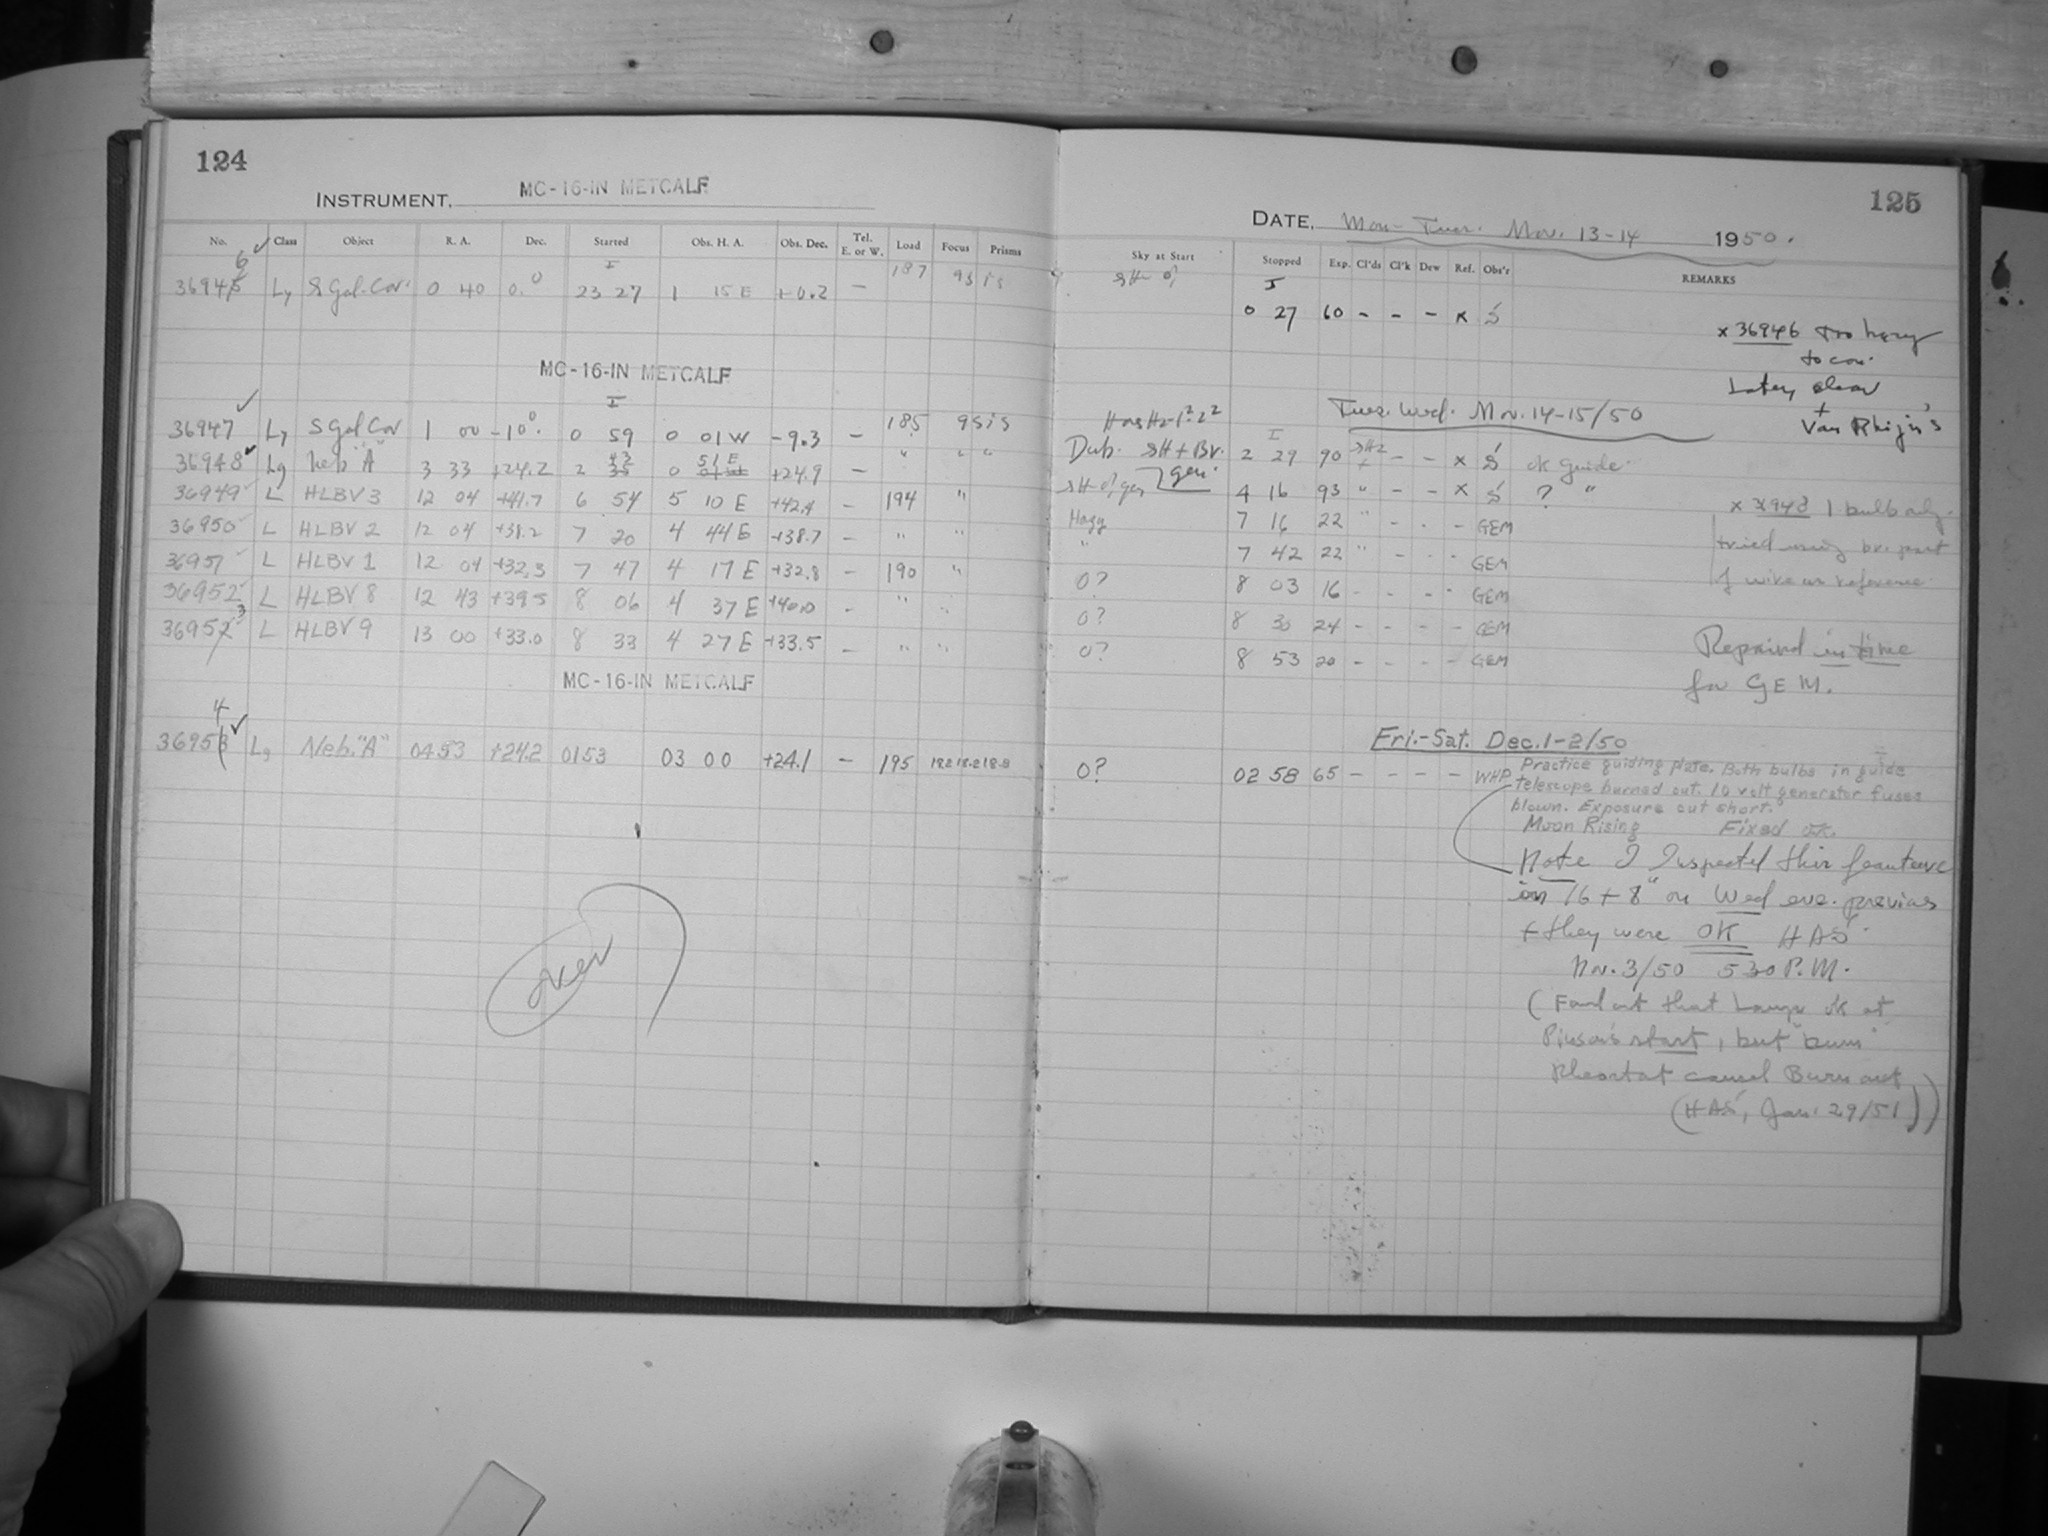 124
INSTRUMENT. MC-16-IN METCALF
No. Class Object R. A. Dec. Started Obs. H. A. Obs. Dec. Tel. E. or W. Load Focus Prisms
36946 Ly S Gal. Cav. 0 40 0.0 23 27 1 15 E +0.2 - 187
MC-16-IN METCALF
36947 Ly S Gal Cav 1 00 -10°. 0 59 0 01 W -9.3 - 185
36948 Lg Neb "A" 3 33 +24.2 2 43 0 51 E +24.9 - "
36949 L HLBV 3 12 04 +41.7 6 54 5 10 E +42.4 - 194 "
36950 L HLBV 2 12 04 +38.2 7 20 4 44 E +38.7 - " "
36951 L HLBV 1 12 04 +32.3 7 47 4 17 E +32.8 - 190 "
36952 L HLBV 8 12 43 +39.5 8 06 4 37 E +40.0 - " "
36953 L HLBV 9 13 00 +33.0 8 33 4 27 E +33.5 - " "
MC-16-IN METCALF
36954 Lg Neb. "A" 04 53 +24.2 01 53 03 00 +24.1 - 195 18.2 18.2 18.8
over
125
DATE, Mon-Tues. Nov. 13-14 1950.
Sky at Start Stopped Exp. Cl'ds Cl'k Dew Ref. Obs'r REMARKS
0 27 60 - - - x S
x 36946 too hazy
to con.
Later, clear
+
Van Rhijn's
Tues. Wed. Nov. 14-15/50
Dub. sH + Br. 2 29 90 - - x S ok guide
gen.
4 16 93 " - - x S ? "
x 36948 1 bulb only.
tried using br. part
of wire as reference.
Hazy 7 16 22 " - - - GEM
" 7 42 22 " - - - GEM
0? 8 03 16 - - - - GEM
0? 8 30 24 - - - - GEM
0? 8 53 20 - - - - GEM
Repaired in time
for GEM.
Fri.-Sat. Dec. 1-2/50
0? 02 58 65 - - - - WHP Practice guiding plate. Both bulbs in guide
telescope burned out. 10 volt generator fuses
blown. Exposure cut short.
Moon Rising Fixed OK.
Note I inspected this feature
in 16 + 8" on Wed eve. previous
+ they were OK HAS.
Nov. 3/50 530 P.M.
(Found out that Lamps ok at
start, but "bum"
Rheostat caused Burn out
(HAS, Jan. 29/51))